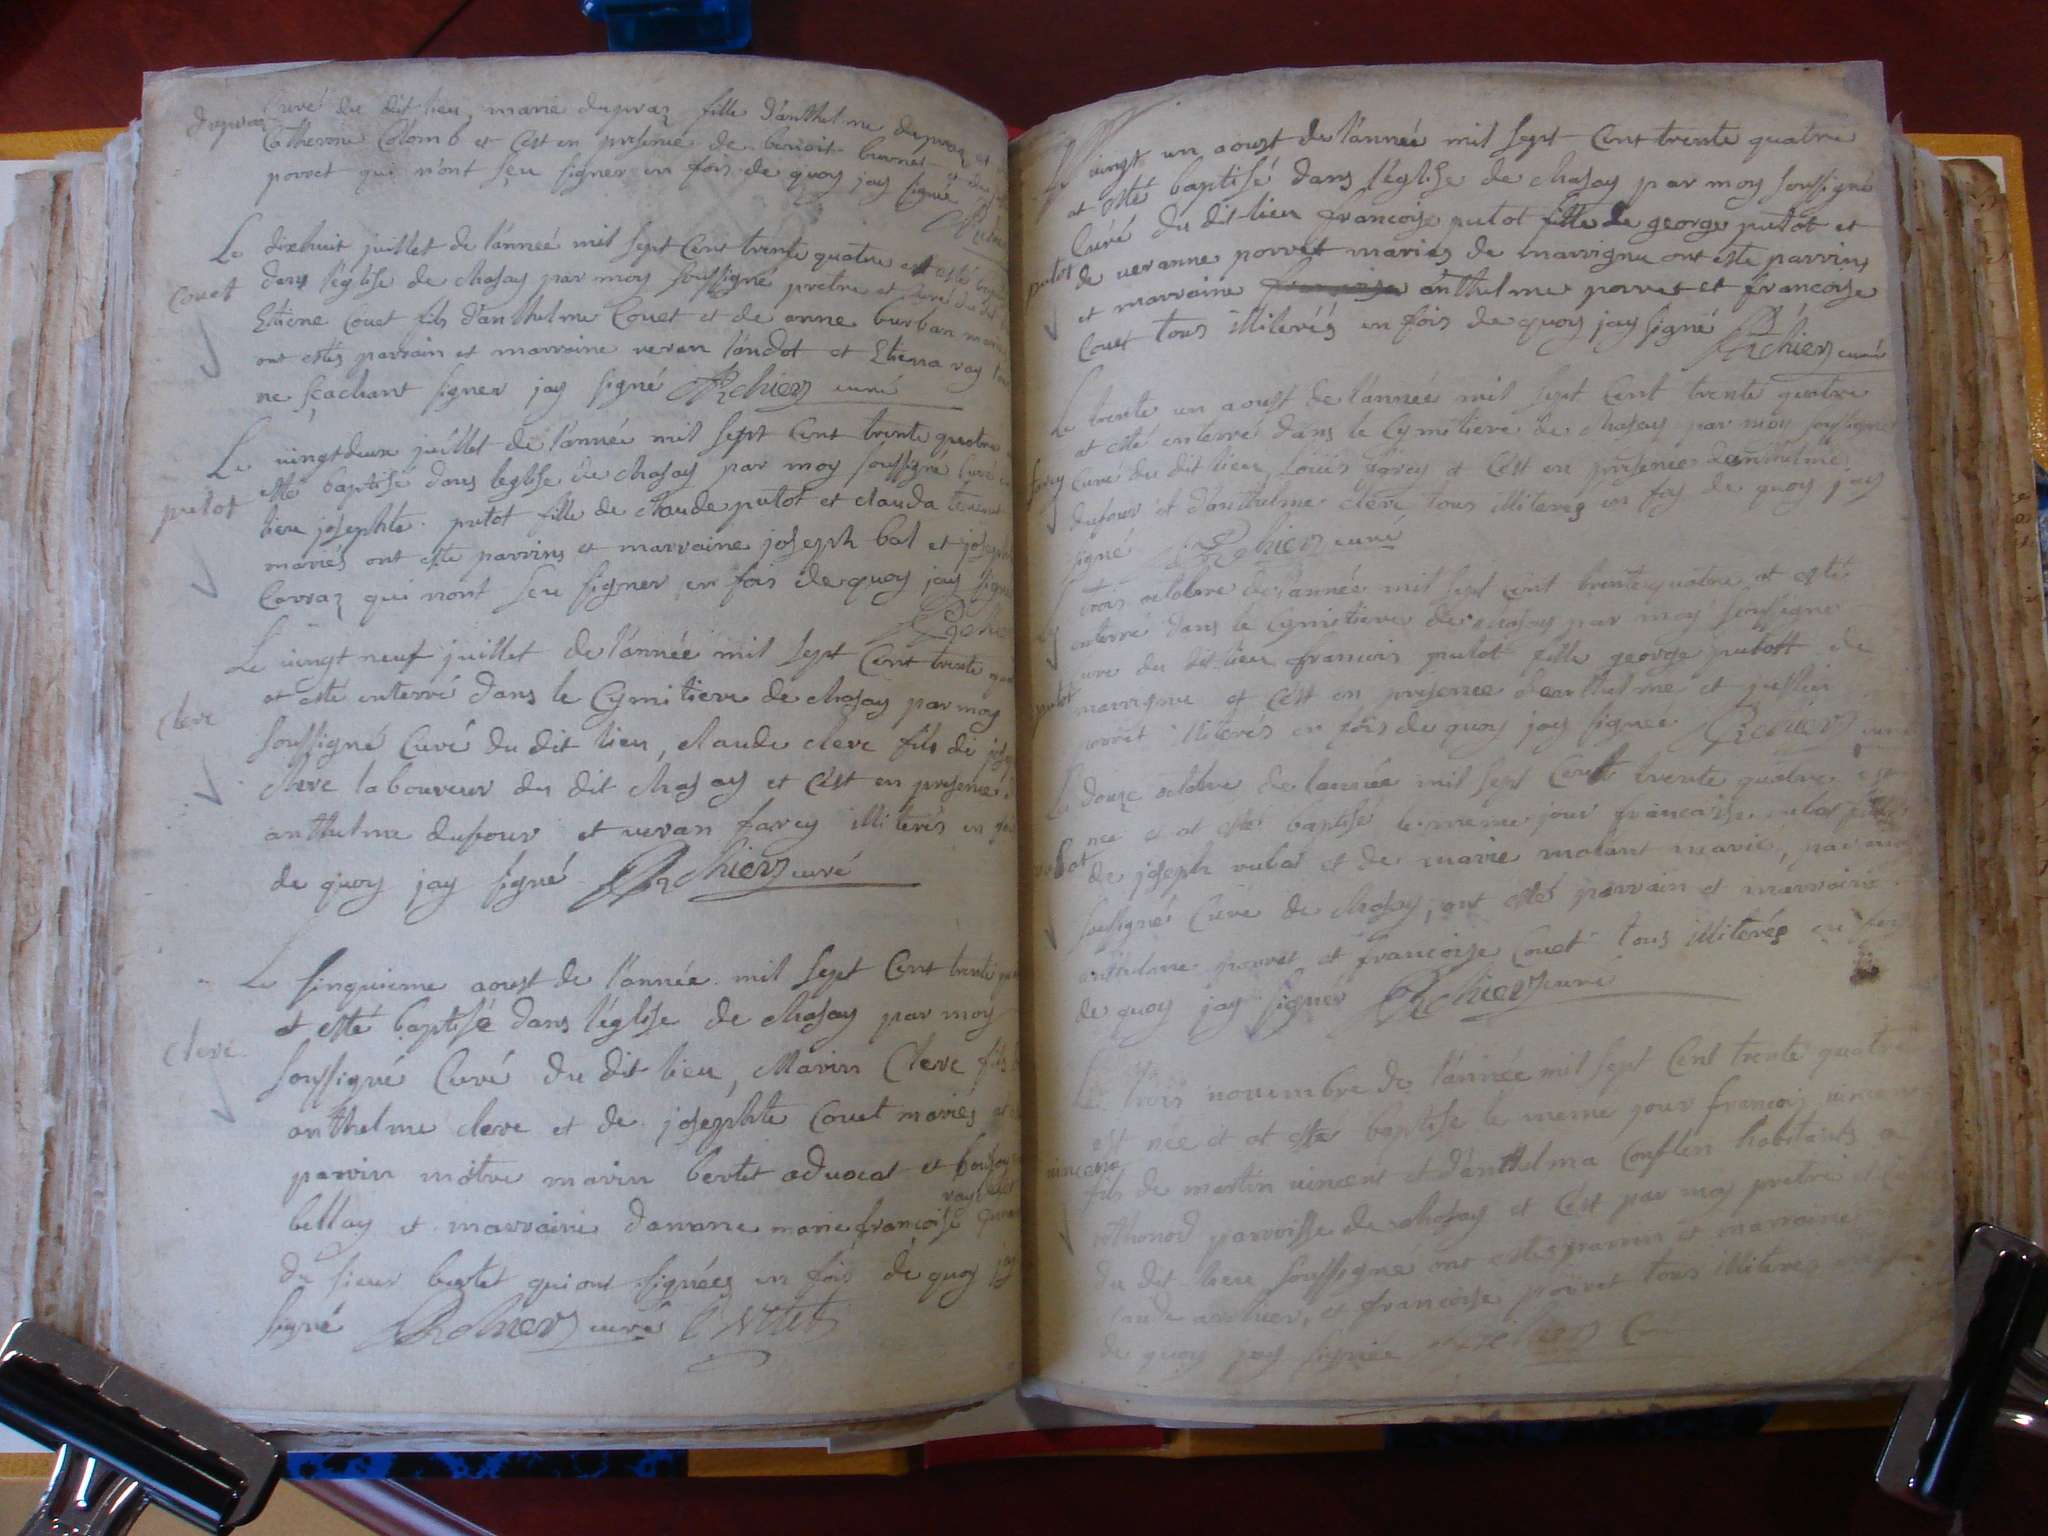 dupraz
Curé du dit lieu, marie dupraz fille d'anthelme dupraz et
Catherine Colomb et cest en presence de benoit burnet
porret qui n'ont sçu signer en fois de quoy jay signé
Le dixhuit juillet de l'anneé mil sept Cent trente quatre at esté
Couet
dans l'églIse de chasay par moy soussigné pretre et Curé du dit
Etiene Couet fils d'anthelme Couet et de anne burban mariés
ont estés parrain et marraine veran landot et Etiena ray
ne sçachant signer jay signé Archiers curé
Le vingtdeux juillet de l'année mil sept Cent trente quatre
putot
esté baptisé dans leglise de chasay par moy soussigné Curé
lieu josephte putot fille de Claude putot et clauda
mariés ont esté parrins et marraine joseph bal et josephte
Carraz qui nont sçeu signer en fois de quoy jay signé
Le vingt neuf juillet de l'année mil sept Cent trente
at esté enterré dans le Cymitiere de chasay par moy
Clerc
soussigné Curé du dit lieu, claude clerc fils de
clerc laboureur du dit chasay et c'est en presence
anthelme dufour et veran farcy illiterés en fois
de quoy jay signé Archiers curé
Le sinquieme aoust de l'année mil sept Cent trente
at esté baptisé dans l'église de chasay par moy
Clerc
soussigné Curé du dit lieu, Marin Clerc fils
anthelme clerc et de josephte Couet mariés
parrin mâitre marin bertet advocat et
bellay et marraine damane marie françoise
du sieur bertet qui ont signées en fois de quoy jay
signé Archiers curé Bertet
Le vingt un aoust de l'année mil sept Cent trente quatre
at esté baptisé dans l'églIse de chasay par moy soussigné
Curé du dit lieu francoise putot fille de george putot et
putot
de veranne porret mariés de marrignu ont esté parrins
et marraine anthelme porret et francoise
Couet tous illiterés en fois de quoy jay signé Archiers curé
Le trente un aoust de l'année mil sept Cent trente quatre
at esté enterré dans le Cymitiere de chasay par moy soussigné
farcy
Curé du dit lieu, Louis farcy et C'est en presence d'anthelme
dufour et d'anthelme clerc tous illiterés en foy de quoy jay
signé Archiers curé
Le trois octobre de l'année mil sept Cent trente quatre at esté
enterré dans le Cymitiere de chasay par moy soussigné
curé du dit lieu francois putot fille george putott de
putot
marrignu et C'est en presence d'anthelme et
porret illiterés en fois de quoy jay signeé Archiers curé
Le douze octobre de lanneé mil sept Cent trente quatre est
neé et at esté baptisé le meme jour francoise rubat fille
rubat
de joseph rubat et de marie molant mariés, par moy
soussigné Curé de chasay, ont estés parrain et marraine
anthelme porret et francoise Couet tous illiterés en foy
de quoy jay signés Archiers curé
Le trois novembre de l'année mil sept Cent trente quatre
est neé et at esté baptisé le meme jour francois vincent
vincent
fils de martin vincent et d'enthelma Conflin habitants a
rothonod parroisse de chasay et C'est par moy pretre et
du dit lieu soussigné ont estés parrin et marraine
archier, et francoise porret tous illiterés
de quoy jay signée Archiers